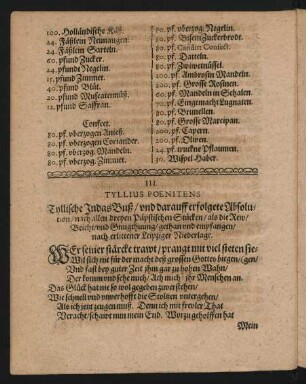 100. Holländische Käß.
24. Fäßlein Neunaugen.
24. Fäßlein Sarteln.
60. pfund Zucker.
24. pfunde Negelin.
15. pfund Zimmet.
40. pfund Blüt.
20. pfund Muscatennüß.
12. pfund Saffran.
Confect.
80. pf. vberzogen Anieß.
80. pf. vberzogen Coriander.
80. pf. vberzog. Mandeln.
80. pf. vberzog. Zimmet.
50. pf. vberzog. Negelin.
50. pf. BisemZuckerbrodt.
80. pf. Confect.
80. pf. Datteln.
80. pf. Zwiwetnüssel.
100. pf. Ambrosin Mandeln.
200. pf. Grosse Rosinen.
60. pf. Mandeln in Schalen.
70. pf. Eingemacht Lugnaten.
90. pf. Brunellen.
80. pf. Grosse Marcipan.
200. pf. Capern.
200. pf. Oliven.
144. pf. truckne Pflaumen.
30. Wispel Haber.
III.
TYLLIUS POENITENS
Tyllische Judas Buß / vnd darauff erfolgete Absolu-
tion / nach allen dreyen Päpstischen Stücken / als die Rew /
Beicht / vnd Gnugthuung / gethan vnd empfangen /
nach erlittener Leipziger Niederlage.
WEr seiner stärcke trawt / prangt mit viel steten sie-
Wil sich nit für der macht deß grossen Gottes biegen / (gen /
Vnd fast bey guter Zeit ihm gar zu hohen Wahn /
Der komm vnd sehe mich / Ach mich / ihr Menschen an.
Das Glück hat mir so wol gegeben zuverstehen /
Wie schnell vnd vnverhofft die Stoltzen vntergehen /
Als ich jetz zeugen muß. Denn ich mit frevler That
Veracht / schawt nun mein End. Worzu geholffen hat
Mein